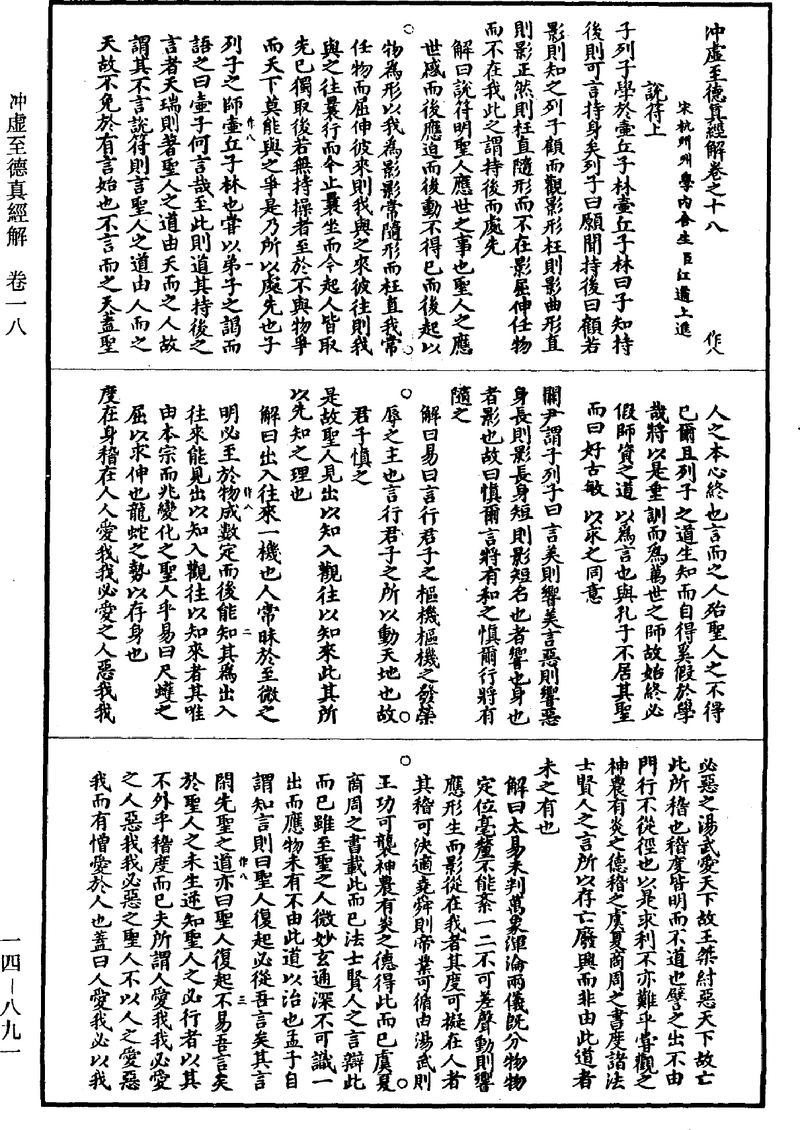 冲虛至德真經解卷之十八 作八
宋杭州州學內舍生臣江遹上進
說符上
子列子學於壺丘子林壺丘子林曰子知持
後則可言持身矣列子曰願聞持後曰顧若
影則知之列子顧而觀影形枉則影曲形直
則影正然則枉直隨形而不在影屈伸任物
而不在我此之謂持後而處先
解曰說符明聖人應世之事也聖人之應
世感而後應迫而後動不得已而後起以
物為形以我為影影常隨形而枉直我常
任物而屈伸彼來則我與之來彼往則我
與之往曩行而今止曩坐而今起人皆取
先已獨取後若無持操者至於不與物爭
而天下莫能與之爭是乃所以處先也子
列子之師壺丘子林也嘗以弟子之謂而
語之曰壺子何言哉至此則道其持後之
言者天瑞則著聖人之道由天而之人故
謂其不言說符則言聖人之道由人而之
天故不免於有言始也不言而之天蓋聖
作八
一
人之本心終也言而之人殆聖人之不得
已爾且列子之道生知而自得奚假於學
哉將以是垂訓而為萬世之師故始終必
假師資之道以為言也與孔子不居其聖
而曰好古敏以求之同意
關尹謂子列子曰言美則響美言惡則響惡
身長則影長身短則影短名也者響也身也
者影也故曰慎爾言將有和之慎爾行將有
隨之
解曰易曰言行君子之樞機樞機之發榮
辱之主也言行君子之所以動天地也故
君子慎之
是故聖人見出以知入觀往以知來此其所
以先知之理也
解曰出入往來一機也人常昧於至微之
明必至於物成數定而後能知其為出入
往來能見出以知入觀往以知來者其唯
由本宗而兆變化之聖人乎易曰尺蠖之
屈以求伸也龍蛇之勢以存身也
度在身稽在人人愛我我必愛之人惡我我
作八
二
必惡之湯武愛天下故王桀紂惡天下故亡
此所稽也稽度皆明而不道也譬之出不由
門行不從徑也以是求利不亦難乎嘗觀之
神農有炎之德稽之虞夏商周之書度諸法
士賢人之言所以存亡廢興而非由此道者
未之有也
解曰太易未判萬象渾淪兩儀既分物物
定位毫釐不能紊一二不可差聲動則響
應形生而影從在我者其度可擬在人者
其稽可決適堯舜則帝業可循由湯武則
王功可襲神農有炎之德得此而已虞夏
商周之書載此而已法士賢人之言辯此
而已雖至聖之人微妙玄通深不可識一
出而應物未有不由此道以治也孟子自
謂知言則曰聖人復起必從吾言矣其言
閑先聖之道亦曰聖人復起不易吾言矣
於聖人之未生逆知聖人之必行者以其
不外乎稽度而已夫所謂人愛我我必愛
之人惡我我必惡之聖人不以人之愛惡
我而有憎愛於人也蓋曰人愛我必以我
作八
三
冲虛至德真經解 卷一八
一四–八九一